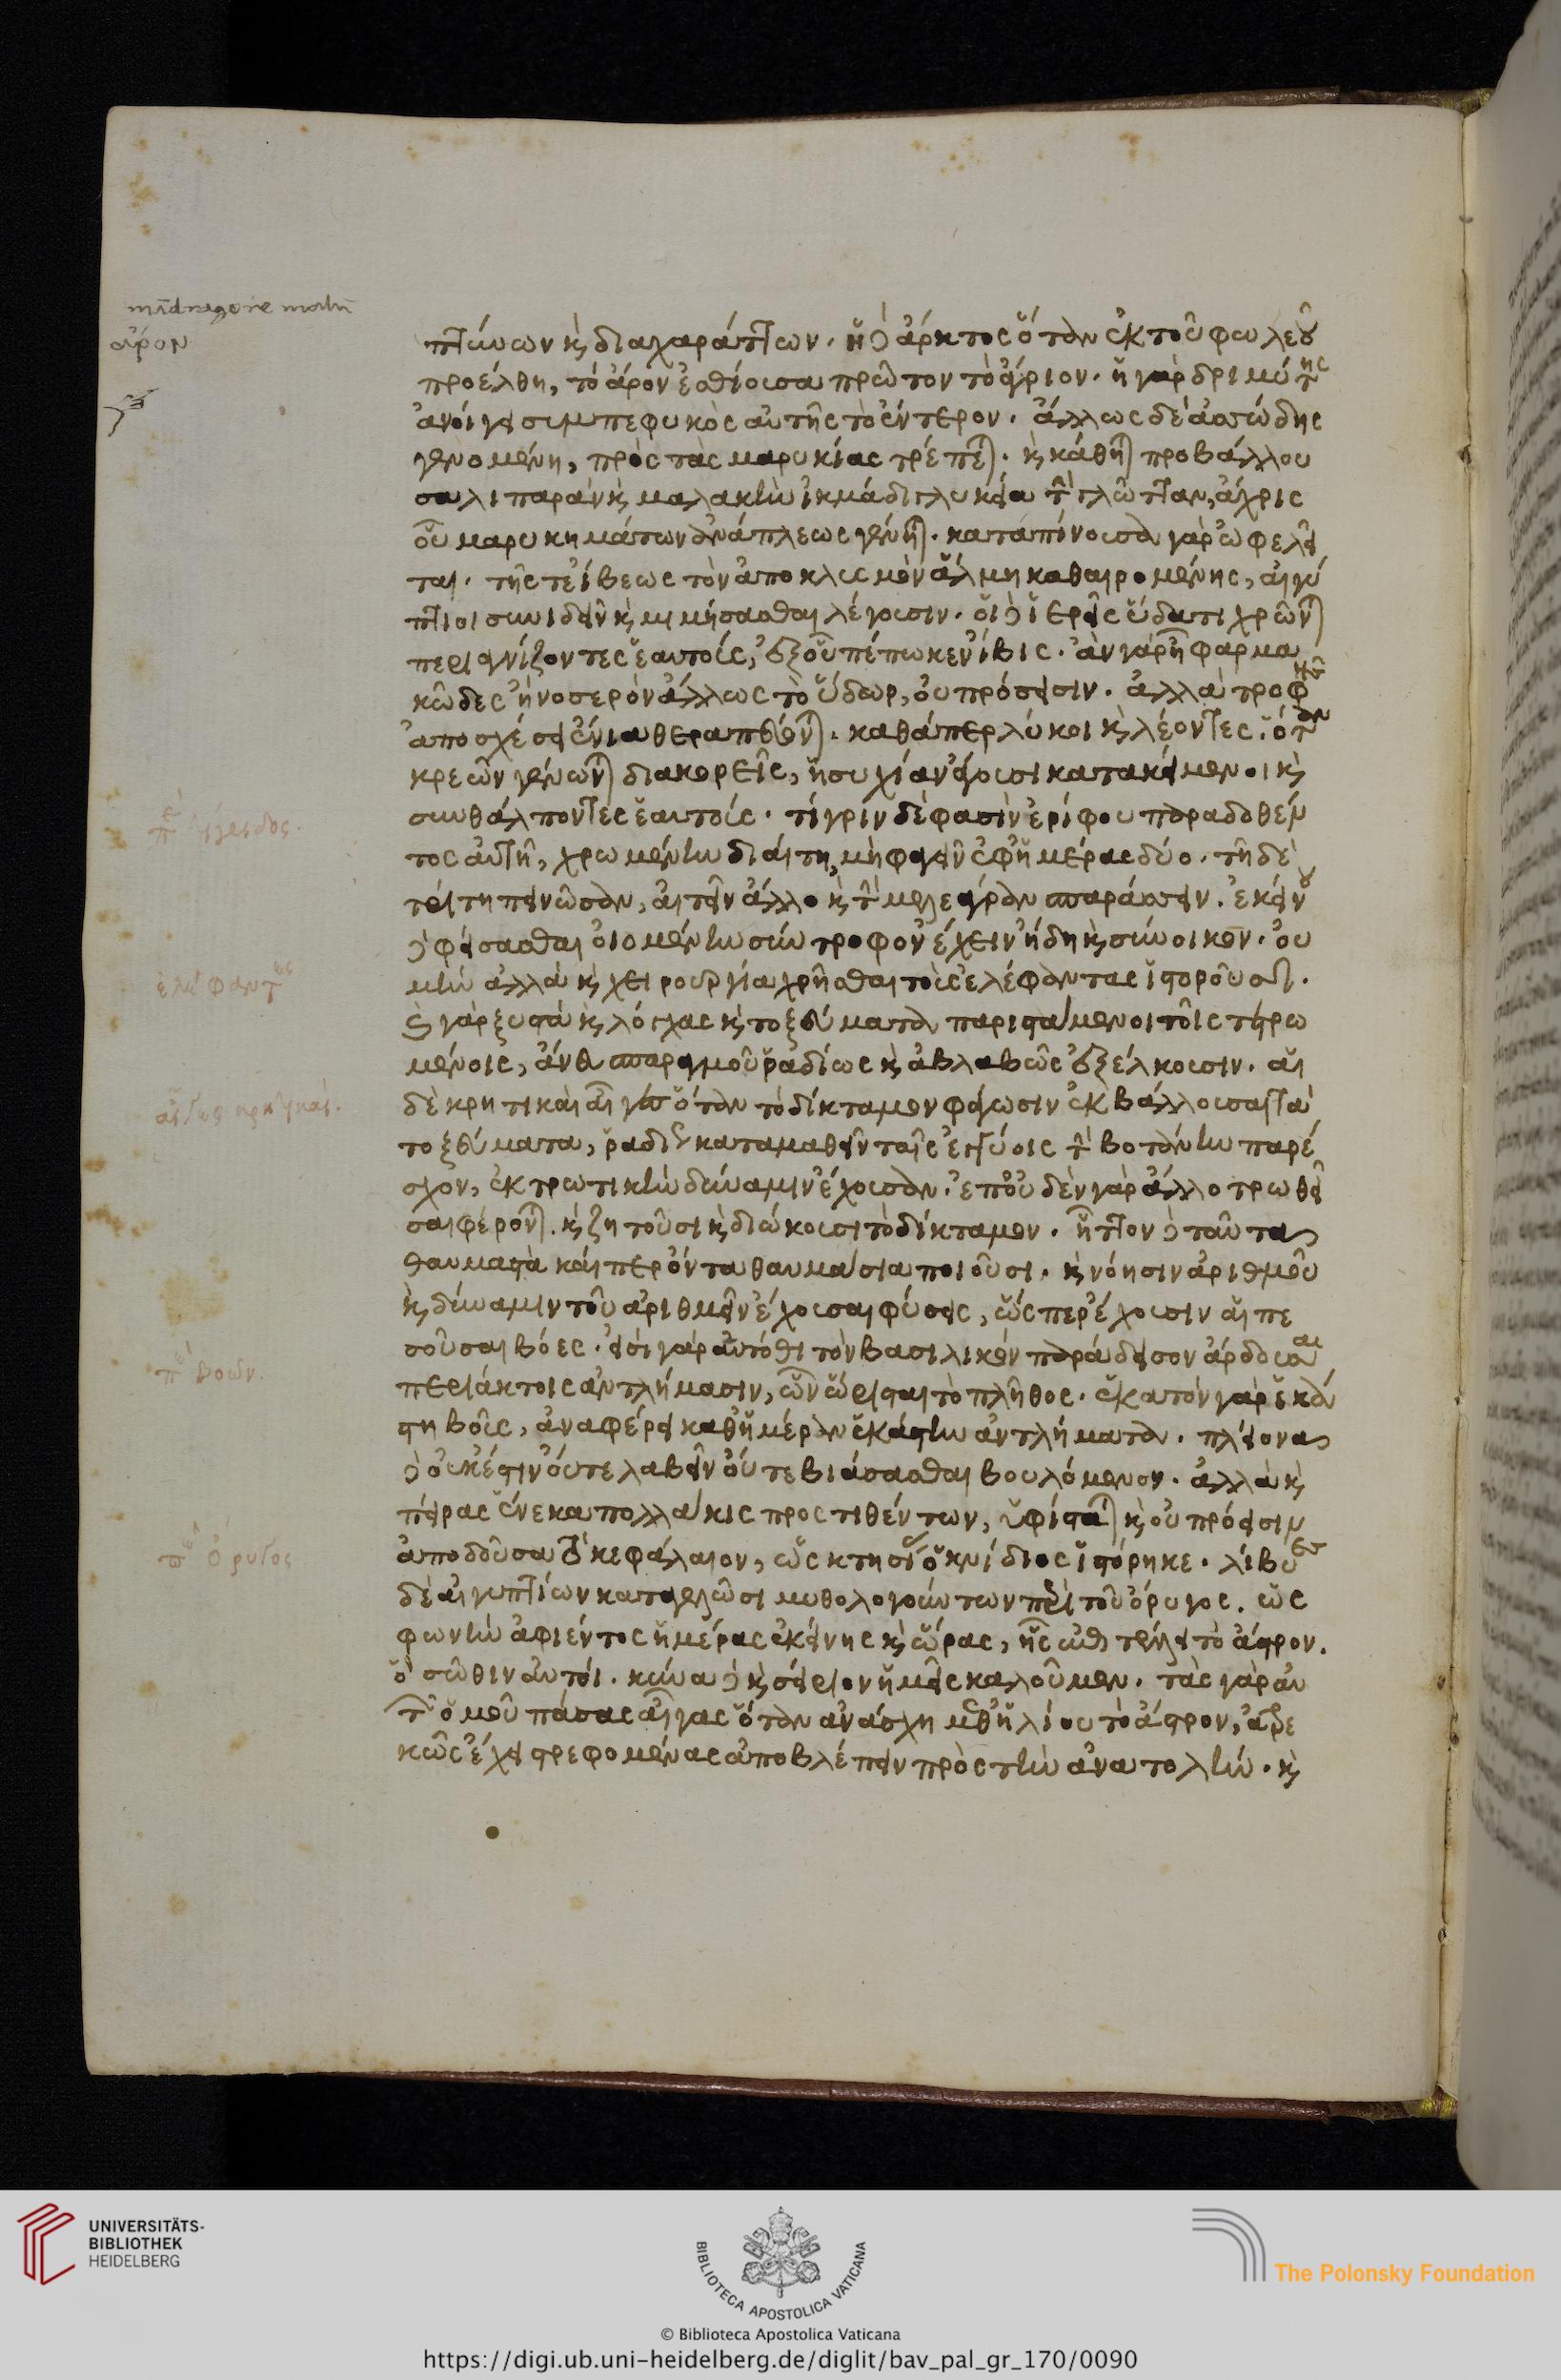 mādragore morbū
ἄρον
πτύων κ διαχαράττων. ἡ δ ἄρκτος ὅταν ἐκ τοῦ φωλεοῦ
προέλθη, τὸ ἄρον ἐσθίουσα πρῶτον τὸ ἄγριον. ἡ γὰρ δριμύτης
ἀνοίγει συμπεφυκὸς αὐτῆς τὸ ἔντερον. ἄλλως δὲ ἀσώδης
γενομένη, πρὸς τὰς μαρυκίας τρέπεται. κ κάθηται προβάλλου
σα λιπαρὰν κ μαλακὴν ἰκμάδι γλυκεία τὴν γλῶτταν, ἄχρις
οὗ μαρυκημάτων ἀνάπλεως γένηται. καταπίνουσα γὰρ ὠφελεῖ
ται. τῆς τε ἴβεως τὸν ὑποκλυσμὸν ἅλμη καθαιρομένης, αἰγύ
πτιοι συνιδεῖν κ μιμήσασθαι λέγουσιν. οἱ δ ἱερεῖς ὕδατι χρῶνται
περιαγνίζοντες ἑαυτοὺς, ἐξ οὗ πέπωκεν ἴβις. ἂν γὰρ ἦ φαρμα
κῶδες ἢ νοσερὸν ἄλλως τὸ ὕδωρ, οὐ πρόσεισιν. ἀλλὰ τροφῆς
ἀποσχέσει ἔνια θεραπεύεται. καθάπερ λύκοι κ λέοντες. ὅταν
κρεῶν γένωνται διακορεῖς, ἡσυχίαν ἄγουσι κατακείμενοι κ
συνθάλποντες ἑαυτούς. τίγριν δὲ φασὶν ἐρίφου παραδοθέν
τος αὐτῆ, χρωμένην διαίτη, μὴ φαγεῖν ἐφ ἡμέρας δύο. τῆ δὲ
τρίτη πεινῶσαν, αἰτεῖν ἄλλο κ τὴν γαλεάγραν σπαράσσειν. ἐκείνου
δ φείσασθαι οἰομένην σύντροφον ἔχειν ἤδη κ σύνοικον. οὐ
μὴν ἀλλὰ κ χειρουργία χρῆσθαι τοὺς ἐλέφαντας ἱστοροῦσι.
κ γὰρ ξυστὰ κ λόγχας κ τοξεύματα παριστάμενοι τοῖς τετρω
μένοις, ἄνευ σπαραγμοῦ ῥαδίως κ ἀβλαβῶς ἐξέλκουσιν. αἱ
δὲ κρητικαὶ αἶγες ὅταν τὸ δίκταμον φάγωσιν ἐκβάλλουσαι τὰ
τοξεύματα, ῥαδίως καταμαθεῖν ταῖς ἐγκύοις τὴν βοτάνην παρέ
σχον, ἐκτρωτικὴν δύναμιν ἔχουσαν. ἐπ οὐδὲν γὰρ ἄλλο τρωθεῖ
σαι φέρονται. κ ζητοῦσι κ διώκουσι τὸ δίκταμον. ἧττον δ ταῦτα
θαυμαστὰ καίπερ ὄντα θαυμάσια ποιοῦσι. κ νόησιν ἀριθμοῦ
κ δύναμιν τοῦ ἀριθμεῖν ἔχουσαι φύσεις, ὥσπερ ἔχουσιν αἱ πε
σοῦσαι βόες. εἰσὶ γὰρ αὐτόθι τὸν βασιλικὸν παράδεισον ἄρδουσαι
περιάκτοις ἀντλήμασιν, ὧν ὥρισται τὸ πλῆθος. ἑκατὸν γὰρ ἑκά
στη βοῦς, ἀναφέρει καθ ἡμέραν ἑκάστην ἀντλήματα. πλείονα
δ οὐκ ἔστιν οὔτε λαβεῖν οὔτε βιάσασθαι βουλόμενον. ἀλλὰ κ
πείρας ἕνεκα πολλάκις προστιθέντων, ὑφίσταται κ οὐ πρόεισιν
ἀποδοῦσα τὸ κεφάλαιον, ὡς κτησίας ὁ κνίδιος ἱστόρηκε. λίβυες
δὲ αἰγυπτίων καταγελῶσι μυθολογούντων περὶ τοῦ ὄρυγος. ὡς
φωνὴν ἀφιέντος ἡμέρας ἐκείνης κ ὥρας, ἧς ἐπιτέλλει τὸ ἄστρον.
ὃ σῶθιν αὐτοὶ. κύνα δ κ σείριον ἡμεῖς καλοῦμεν. τὰς γὰρ αὐ
τῶν ὁμοῦ πάσας αἶγας ὅταν ἀνάσχη μεθ ἡλίου τὸ ἄστρον, ἀτρε
κῶς ἐκεῖ στρεφομένας ἀποβλέπειν πρὸς τὴν ἀνατολήν. κ
π τίγριδος.
ἐλέφαντες
αἶγες κρητικαί.
π βοῶν.
π ὄρυγος
UNIVERSITÄTS-
BIBLIOTHEK
HEIDELBERG
BIBLIOTECA APOSTOLICA VATICANA
The Polonsky Foundation
© Biblioteca Apostolica Vaticana
https://digi.ub.uni-heidelberg.de/diglit/bav_pal_gr_170/0090